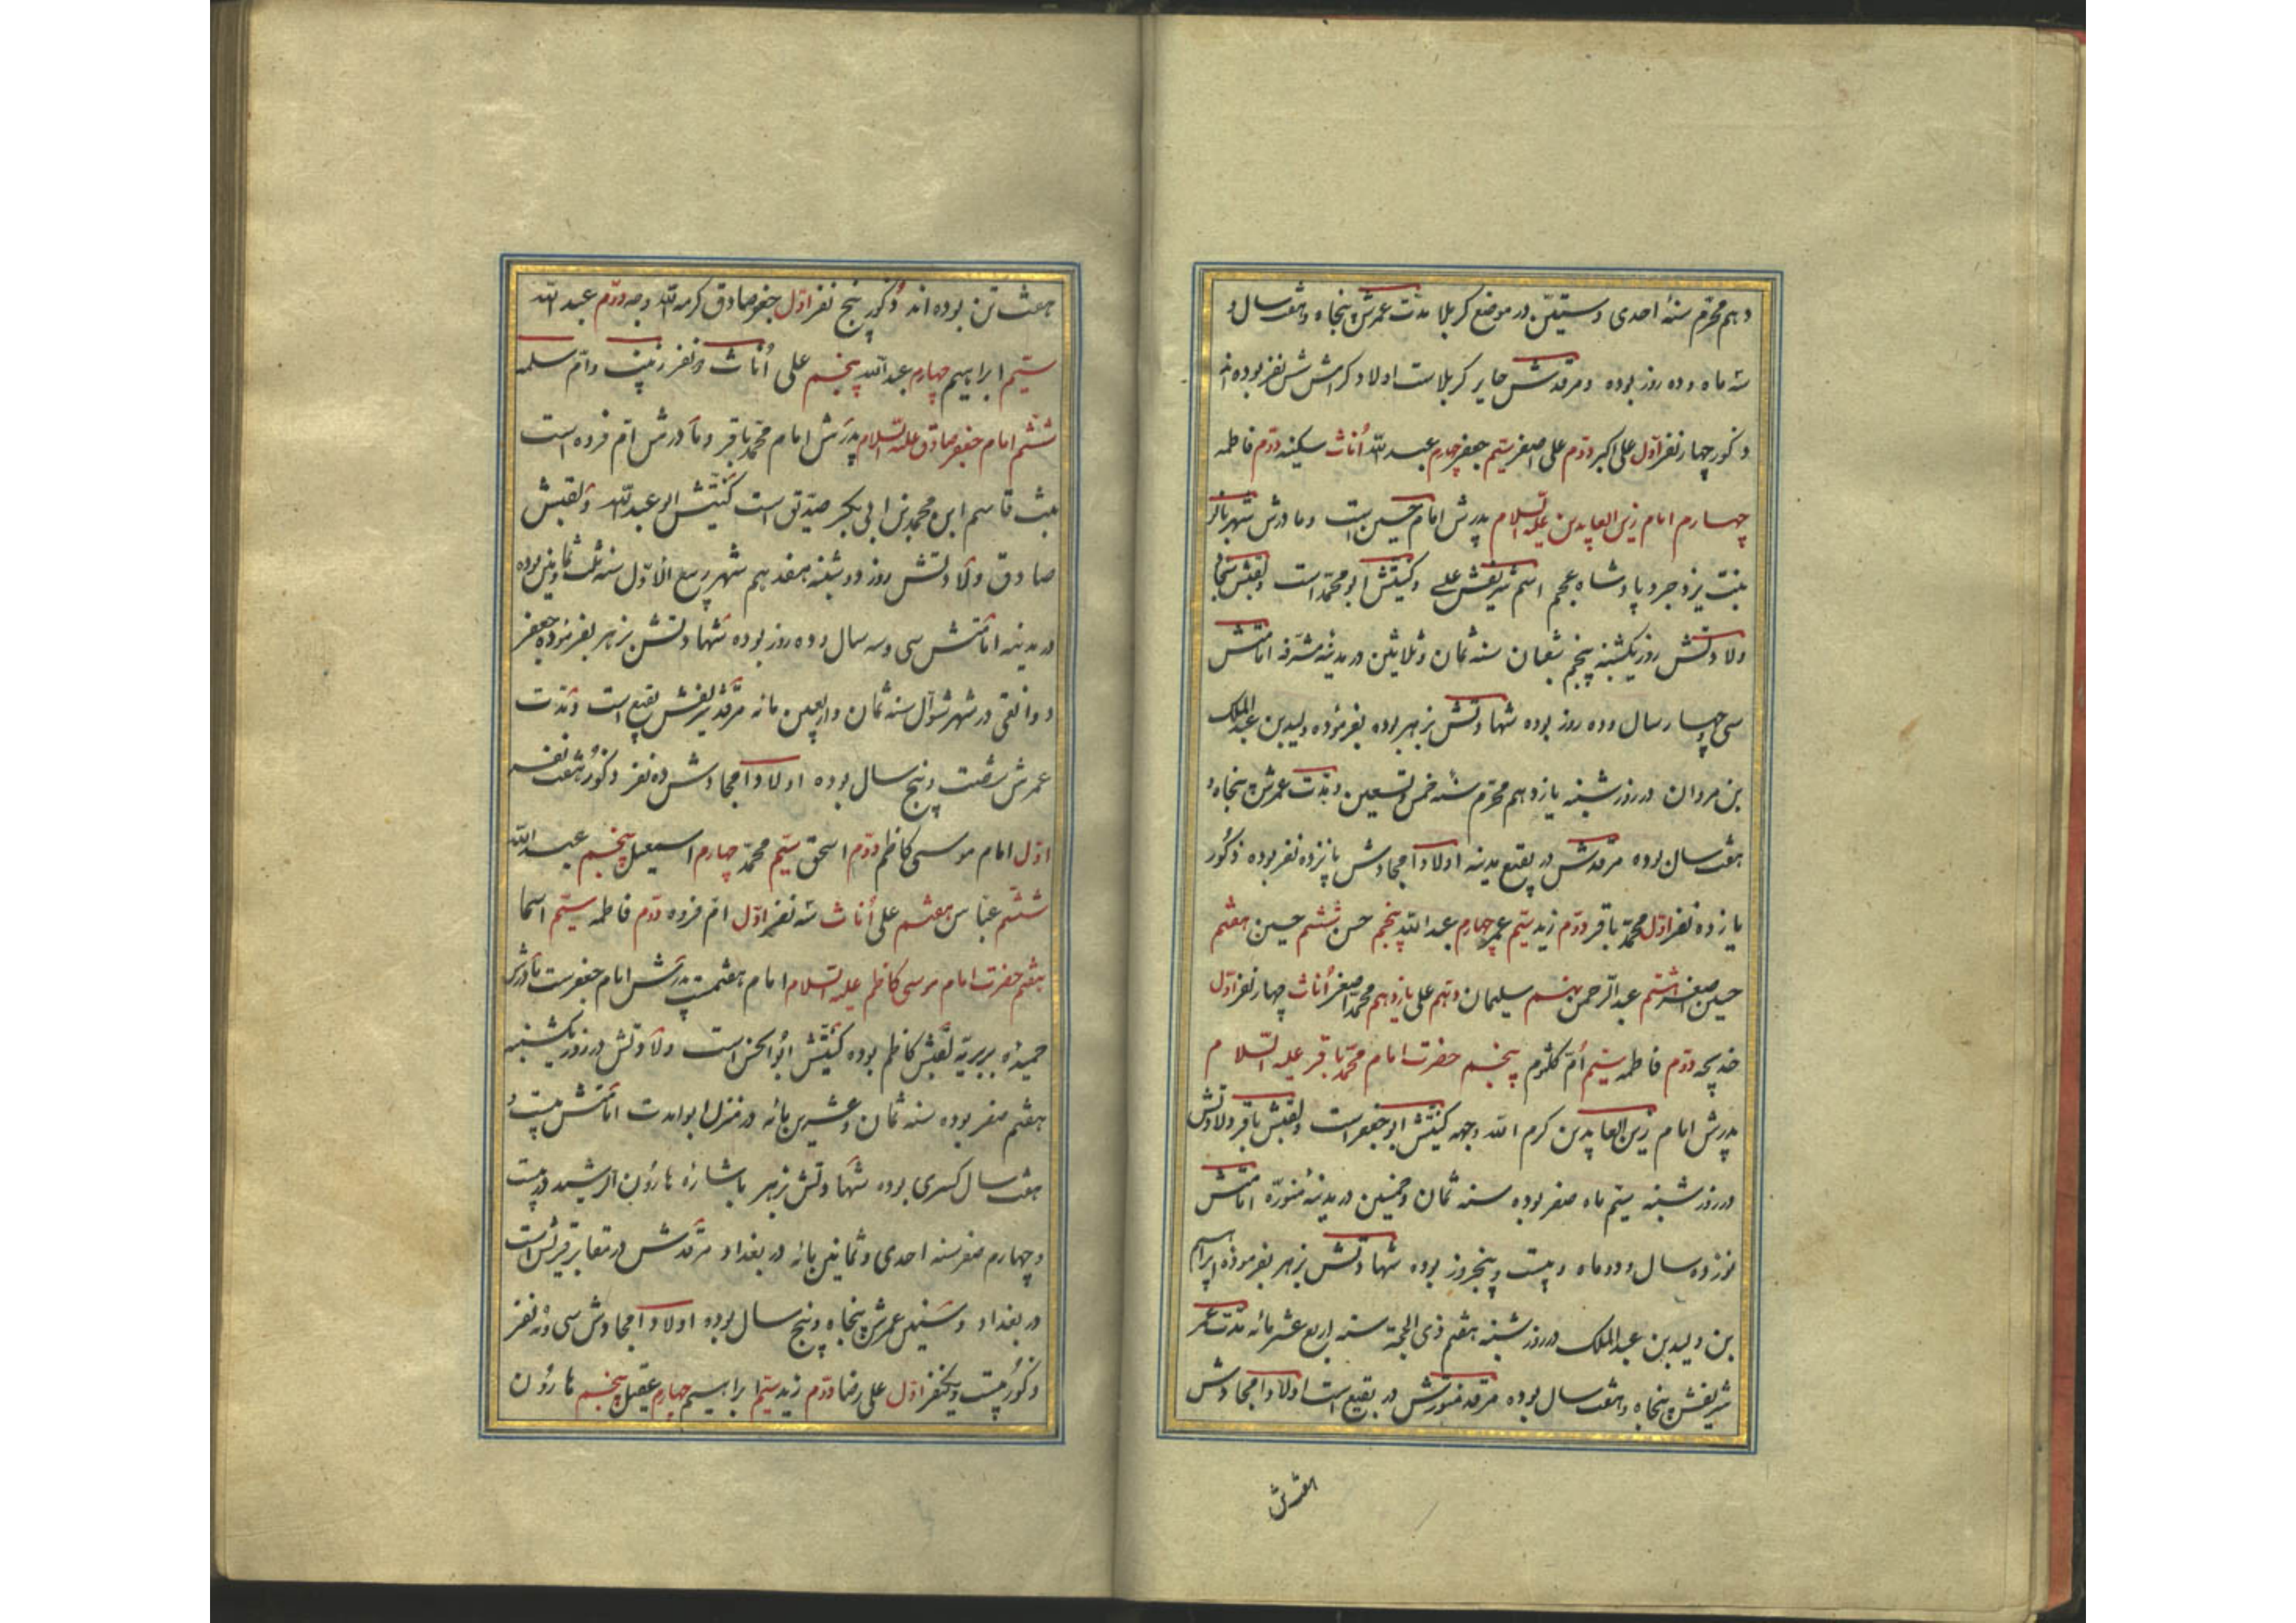 دهم محرّم سنهٔ احدی و ستّین در موضع کربلا مدّت عمرش پنجاه و هفت سال و
سه ماه و ده روز بوده و مرقدش حایر کربلاست اولاد کرامش شش نفر بوده اند
ذکور چهار نفر اوّل علی اکبر دوّم علی اصغر سیّم جعفر چهارم عبد الله اُناث سکینه دوّم فاطمه
چهارم امام زین العابدین علیه السّلام پدرش امام حسین است و مادرش شهربانو
بنت یزدجرد پادشاه عجم اسم شریفش علی و کنیتش ابو محمّد است و لقبش سجاد
ولادتش روز یکشنبه پنجم شعبان سنه ثمان و ثلاثین در مدینهٔ مشرّفه امامتش
سی و چهار سال و ده روز بوده شهادتش بزهر بوده بفرموده ولید بن عبد الملک
بن مروان در روز شنبه یازدهم محرّم سنهٔ خمس و تسعین و مدّت عمرش پنجاه و
هفت سال بوده مرقدش در بقیع مدینه اولاد امجادش پانزده نفر بوده ذکور
یازده نفر اوّل محمّد باقر دوّم زید سیّم عمر چهارم عبد الله پنجم حسن ششم حسین هفتم
حسین اصغر هشتم عبد الرّحمن نهم سلیمان دهم علی یازدهم محمّد اصغر اُناث چهار نفر اوّل
خدیجه دوّم فاطمه سیّم اُمّ کلثوم پنجم حضرت امام محمّد باقر علیه السّلام
پدرش امام زین العابدین کرم الله وجهه کنیتش ابو جعفر است و لقبش باقر ولادتش
در روز شنبه سیّم ماه صفر بوده سنه ثمان و خمسین در مدینهٔ منورّه امامتش
نوزده سال و دو ماه و بیست و پنجروز بوده شهادتش بزهر بفرموده ابراهیم
بن ولید بن عبد الملک در روز شنبه هفتم ذی الحجة سنه اربع عشر مائه مدّت عمر
شریفش پنجاه و هفت سال بوده مرقد منورش در بقیع است اولاد امجادش
هفت تن بوده اند ذُکور پنج نفر اوّل جعفر صادق کرم الله وجهه دوّم عبد الله
سیّم ابراهیم چهارم عبد الله پنجم علی اُناث دو نفر زینب و اُمّ سلمه
ششم امام جعفر صادق علیه السّلام پدرش امام محمّد باقر و مادرش اُمّ فروه است
بنت قاسم ابن محمد بن ابی بکر صدّیق است کنیتش ابو عبد الله و لقبش
صادق ولادتش روز دوشنبه هفدهم شهر ربیع الاوّل سنه ثلث ثمانین بوده
در مدینه امامتش سی و سه سال و ده روز بوده شهادتش بزهر بفرمودهٔ جعفر
دوانقی در شهر شوّال سنه ثمان و اربعین مائه مرقد شریفش بقیع است و مدّت
عمرش شصت و پنج سال بوده اولاد امجادش ده نفر ذکور هفت نفر
اوّل امام موسی کاظم دوّم اسحق سیّم محمّد چهارم اسمعیل پنجم عبد الله
ششم عبّاس هفتم علی اُناث سه نفر اوّل امّ فروه دوّم فاطمه سیّم اسما
هفتم حضرت امام موسی کاظم علیه السّلام امام هفتمست پدرش امام جعفرست مادرش
حمیدهٔ بربریّه لقبش کاظم بوده کنیتش ابو الحسن است ولادتش در روز یکشنبه
هفتم صفر بوده سنه ثمان و عشرین مائه در منزل ابوا مدت امامتش بیست و
هفت سال کسری بوده شهادتش بزهر باشارهٔ هارون الرشید در بیست
و چهارم صفر سنه احدی و ثمانین مائه در بغداد مرقدش در مقابر قریش است
در بغداد و سنین عمرش پنجاه و پنج سال بوده اولاد امجادش سی و نه نفر
ذکور بیست و یکنفر اوّل علی رضا دوّم زید سیّم ابراهیم چهارم عقیل پنجم هارون